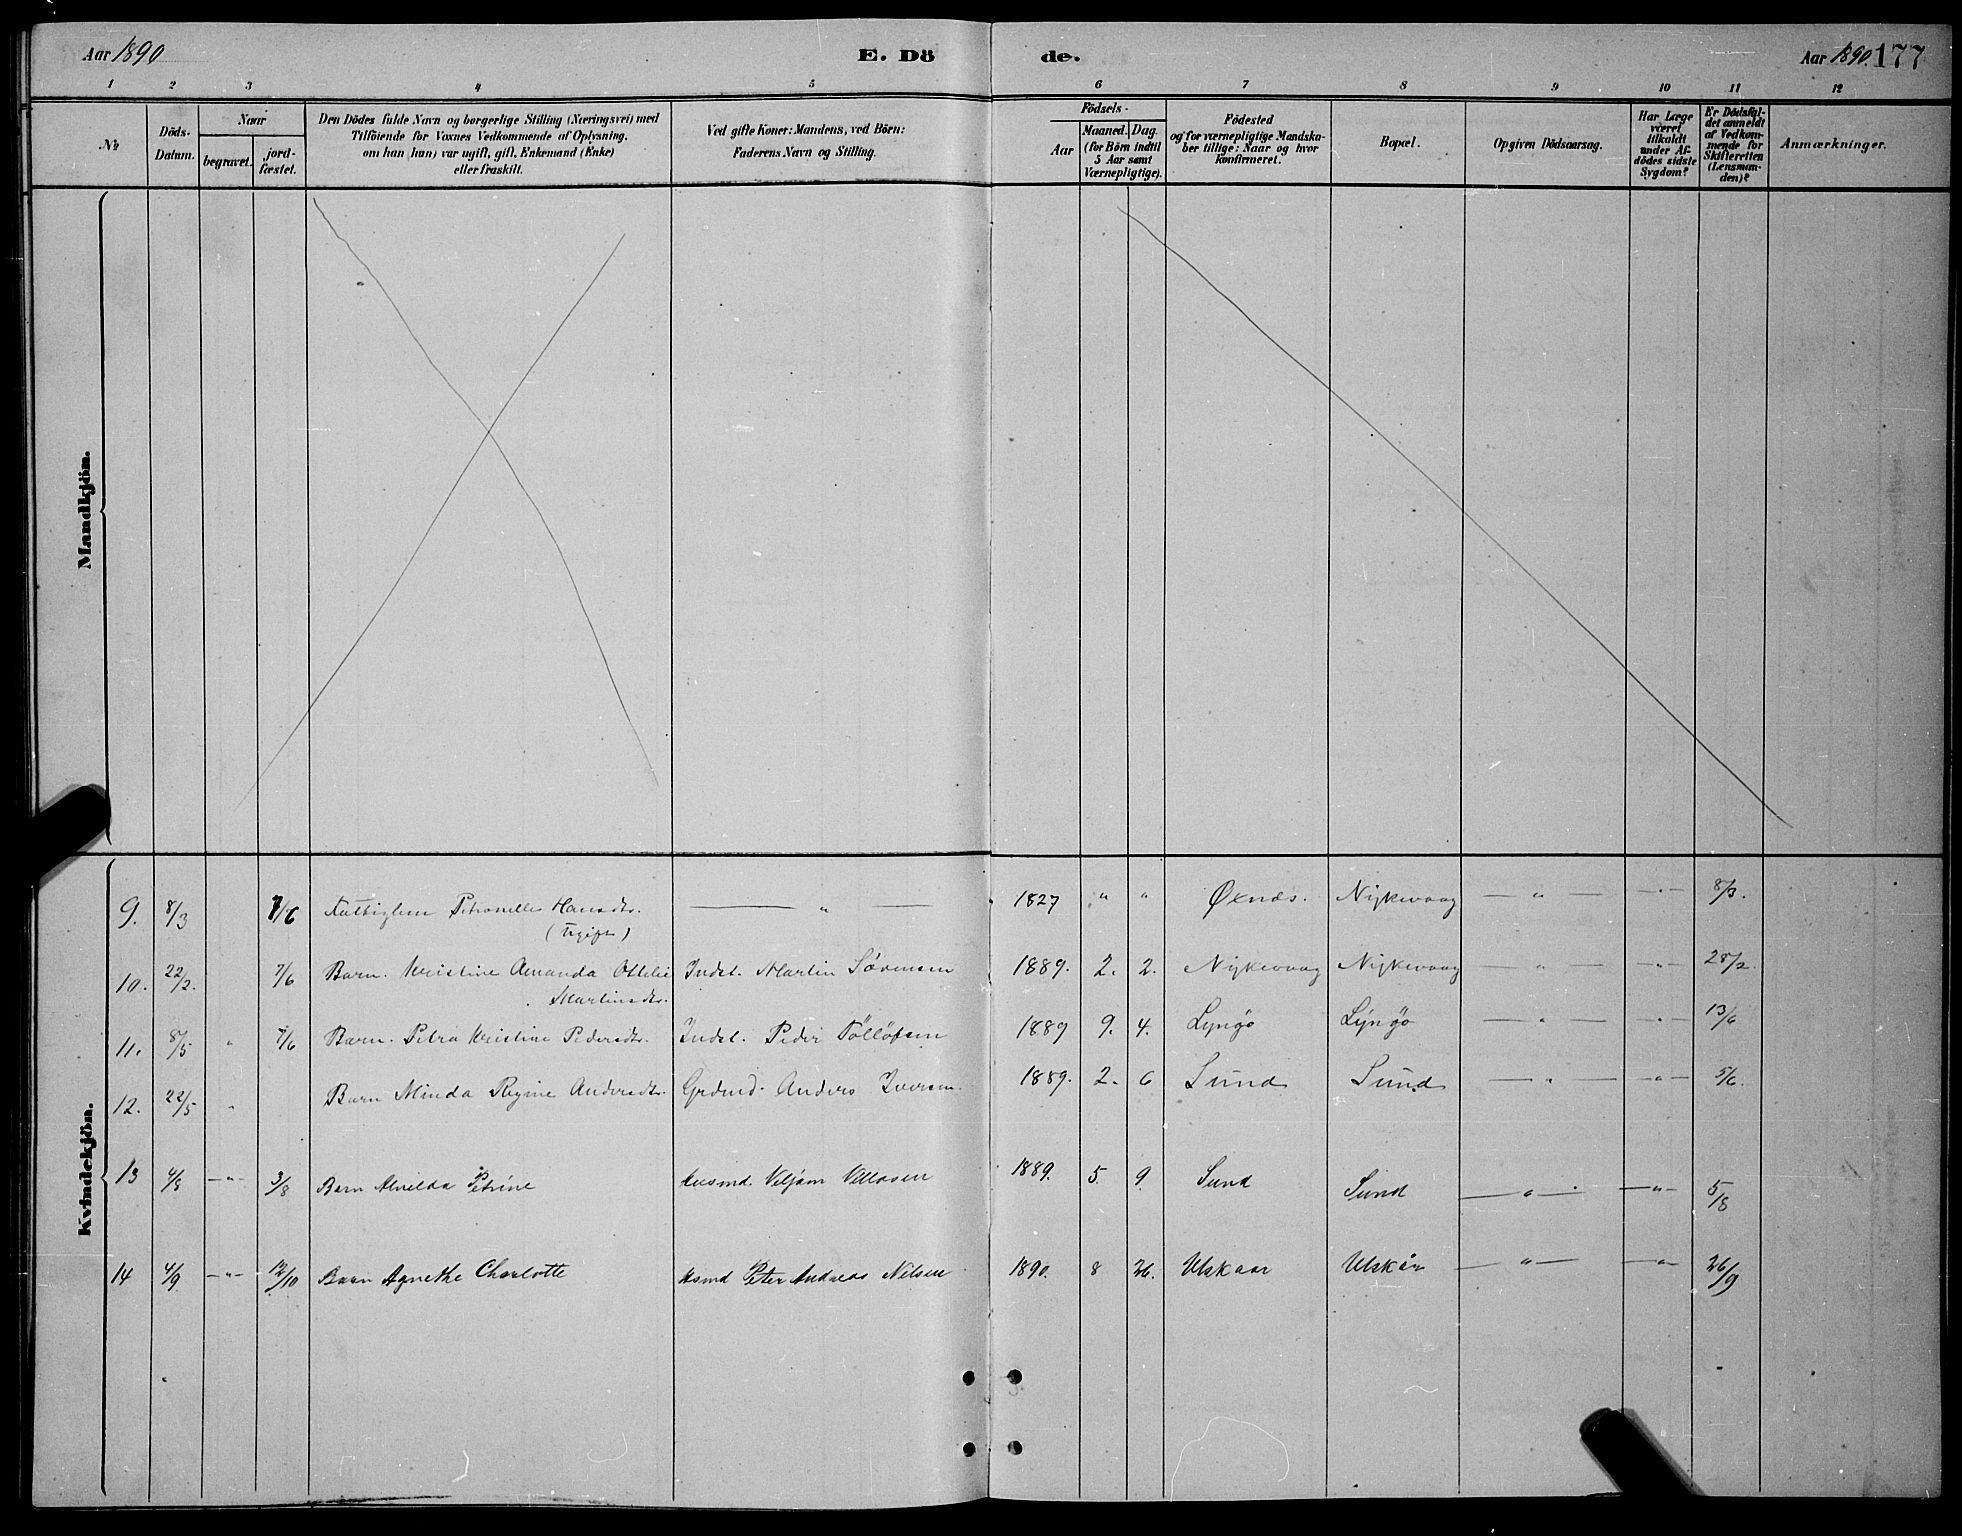 Aar 1890
E. Dö
de.
Aar 1890. 177
1 2 3 4 5 6 7 8 9 10 11 12
№
Döds-
Datum.
Naar
begravet.
jord-
fæstet.
Den Dödes fulde Navn og borgerlige Stilling (Næringsvei) med
Tilföiende for Voxnes Vedkommende af Oplysning.
om han (hun) var ugift, gift, Enkemand (Enke)
eller fraskilt.
Ved gifte Koner: Mandens, ved Börn:
Faderens Navn og Stilling.
Födsels-
Aar
Maaned. Dag.
(for Börn indtil
5 Aar samt
Værnepligtige).
Födested
og for værnepligtige Mandska-
ber tillige: Naar og hvor
konfirmeret.
Bopæl.
Opgiven Dödsaarsag.
Har Læge
været
tilkaldt
under Af-
dödes sidste
Sygdom?
Er Dödsfal-
det anmeldt
af Vedkom-
mende for
Skifteretten
(Lensman-
den)?
Anmærkninger.
Mandkjön.
Kvindekjön.
9. 8/3 7/6 Petronelle Hansdtr. — " — 1827 " " Øxnes. Nykvaag — " — — " — 8/3.
(Ugift)
10. 22/2. 7/6 Barn. Kristine Amanda Ottilie Indst. Martin Sörensen 1889. 2. 2. Nykvaag Nykvaag — " — — " — 28/2.
Martinsdtr.
11. 8/5 " 7/6 Barn. Petra Kristine Pedersdtr. Indst. Peder Tölløfsen 1889 9. 4. Lyngö Lyngö — " — — " — 13/6
12. 22/5 " Barn Minda Regine Andersdtr. Grdmd. Anders Iversen. 1889. 2. 6 Sund Sund — " — — " — 5/6.
13 4/8 — " — 3/8 Barn Alvilda Petrine Husmd. Veljam 1889. 5 9. Sund Sund — " — — " — 5/18
14 4/9 — " — 12/10 Barn Agnethe Charlotte Husmd Peter Andreas Nilsen 1890. 8 26. Ulskaar Ulskår — " — — " — 26/9